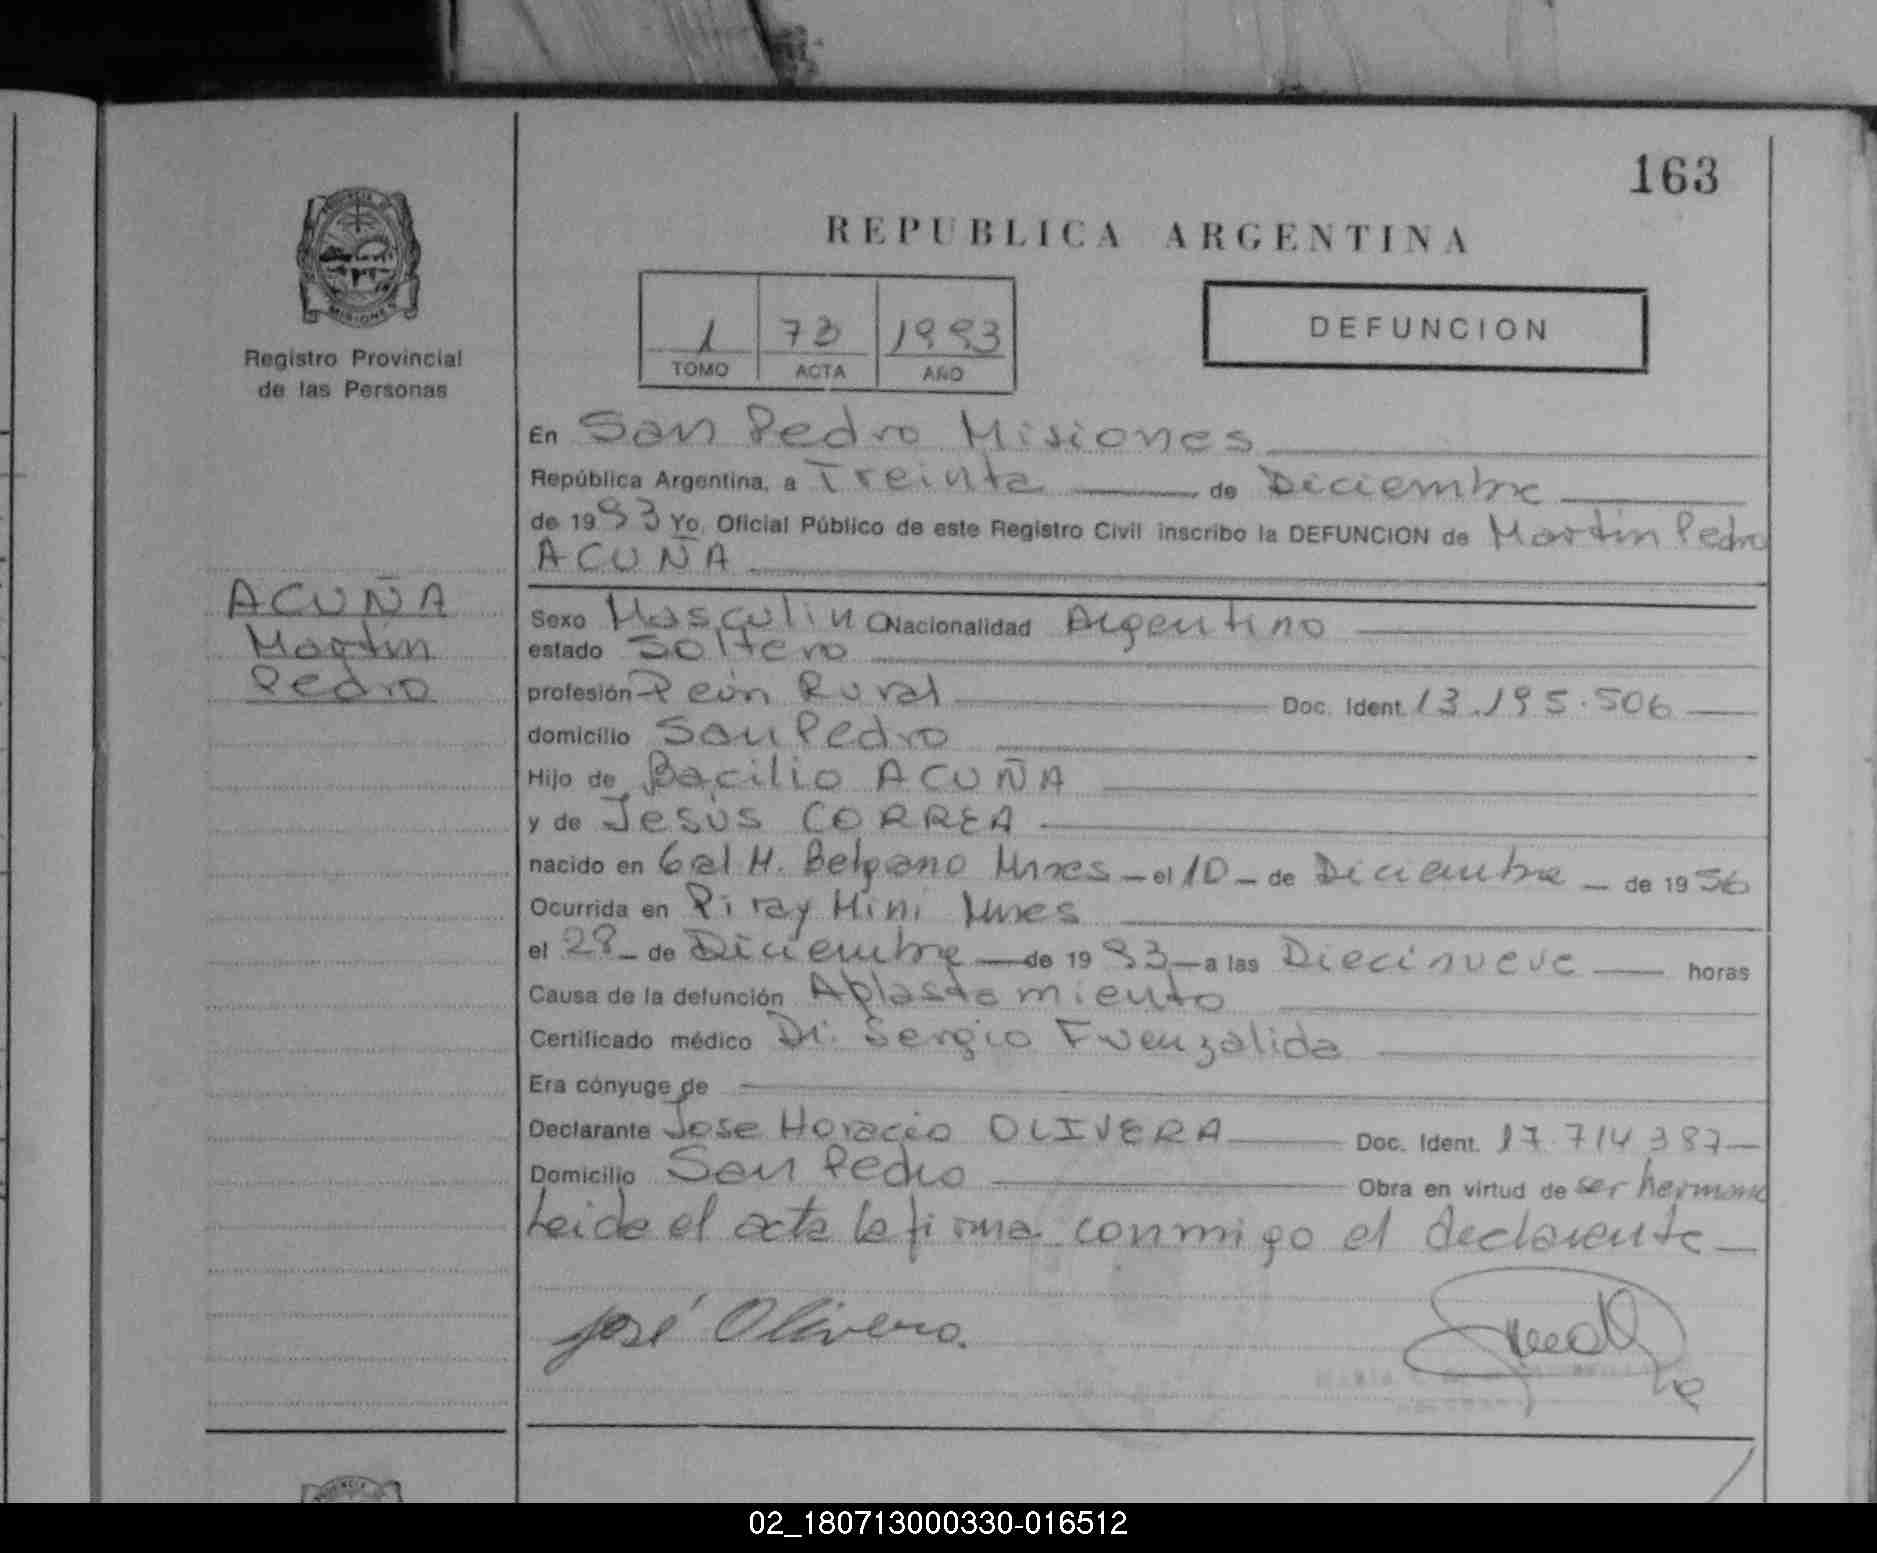 163
REPUBLICA ARGENTINA
MISIONES
Registro Provincial
de las Personas
1 73 1993
TOMO ACTA AÑO
DEFUNCION
En San Pedro Misiones
República Argentina, a Treinta de Diciembre
de 1993 Yo, Oficial Público de este Registro Civil inscribo la DEFUNCION de Martin Pedro
ACUÑA
ACUÑA
Martin
Pedro
Sexo Masculino Nacionalidad Argentino
estado Soltero
profesión Peón Rural Doc. Ident. 13.195.506
domicilio San Pedro
Hijo de Bacilio ACUÑA
y de Jesús CORREA
nacido en Gal M. Belgano Mnes - el 10 - de Diciembre - de 1956
Ocurrida en Piray Mini Mnes
el 28 - de Diciembre - de 1993 - a las Diecinueve horas
Causa de la defunción Aplastamiento
Certificado médico Dr. Sergio Fuenzalida
Era cónyuge de
Declarante Jose Horacio OLIVERA Doc. Ident. 17.714.387
Domicilio San Pedro Obra en virtud de ser hermano
Leida el acta la firma conmigo el declarante
José Olivera.
02_180713000330-016512